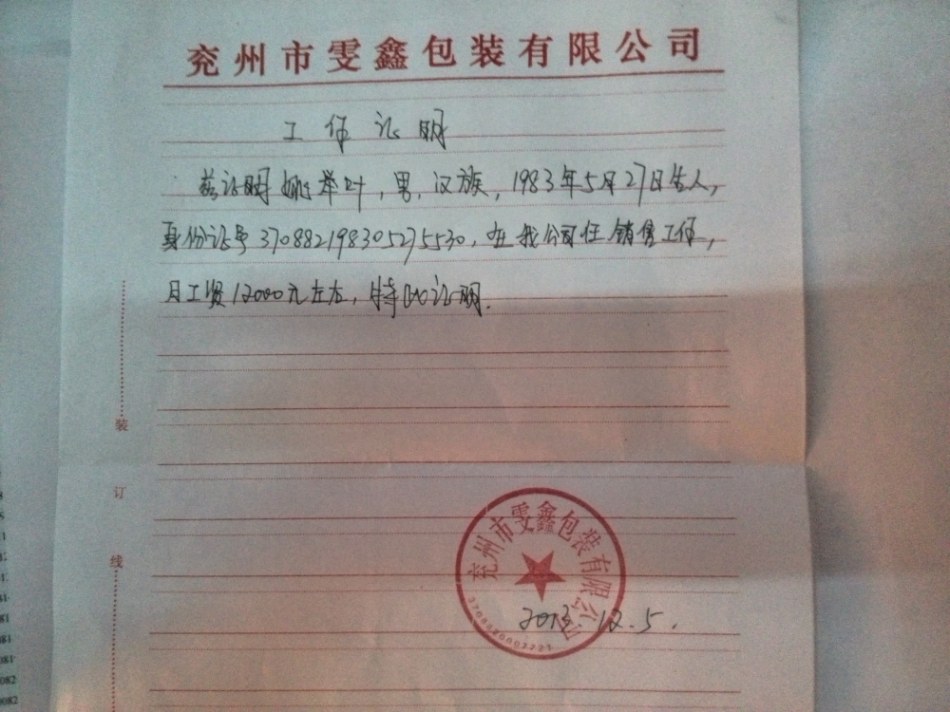 兖州市雯鑫包装有限公司
工作证明
兹证明姚举叶,男,汉族,1983年5月27日生人,
身份证号370882198305275530,在我公司任销售工作,
月工资12000元左右,特此证明.
装
订
线
兖州市雯鑫包装有限公司
2013.12.5.